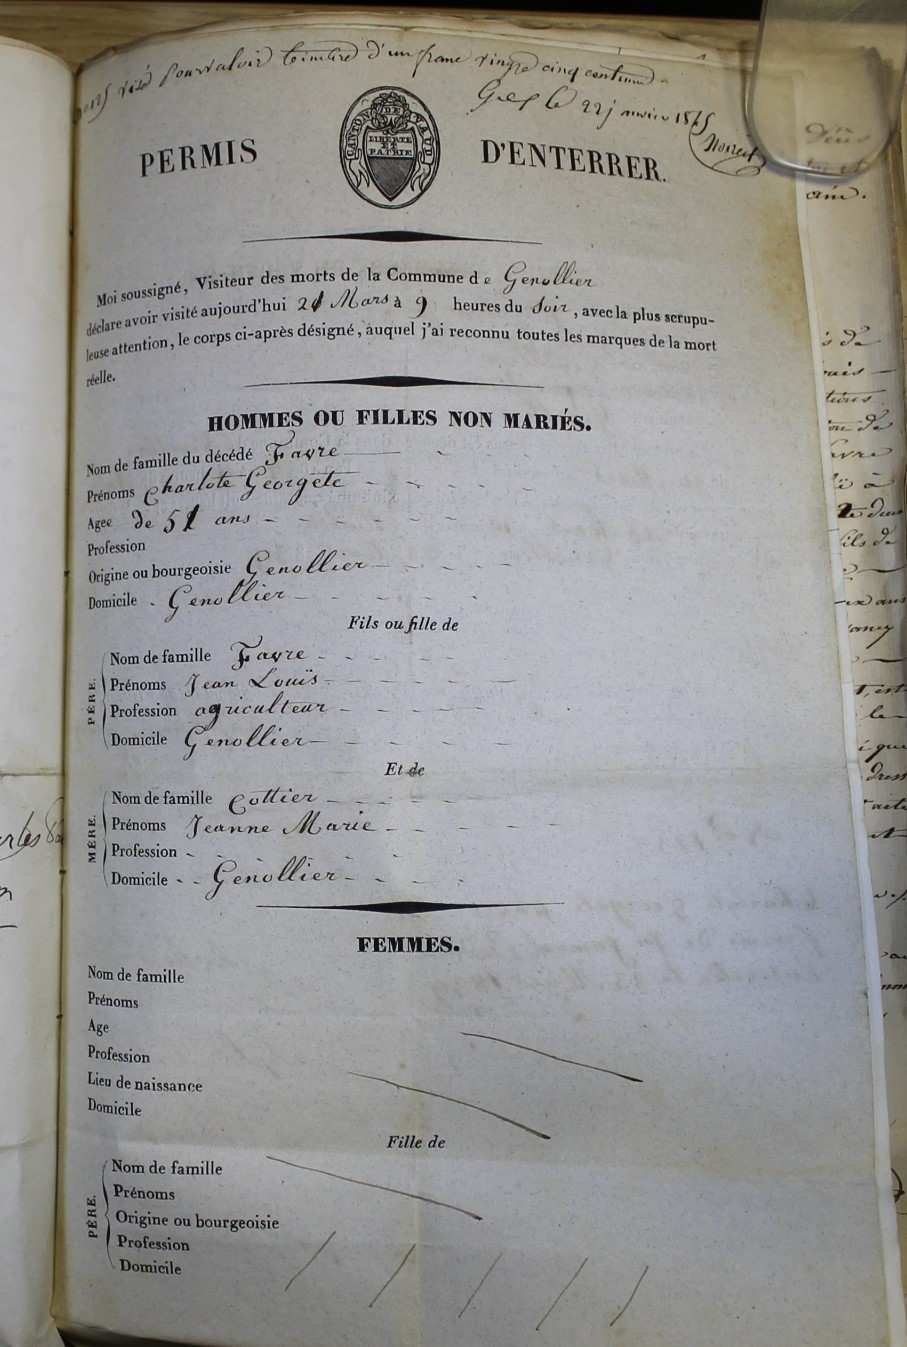 visé pour valoir timbre d'un franc vingt cinq centimes
Gex le 22 janvier 18
CANTON DE VAUD
LIBERTÉ
ET
PATRIE
PERMIS D'ENTERRER.
Moi soussigné, Visiteur des morts de la Commune de Genollier
déclare avoir visité aujourd'hui 21 Mars à 9 heures du Soir, avec la plus scrupu-
leuse attention, le corps ci-après désigné, auquel j'ai reconnu toutes les marques de la mort
réelle.
HOMMES OU FILLES NON MARIÉS.
Nom de famille du décédé Favre
Prénoms Charlote Georgete
Agee de 51 ans
Profession
Origine ou bourgeoisie Genollier
Domicile Genollier
Fils ou fille de
PÈRE.
Nom de famille Favre
Prénoms Jean Louïs
Profession agriculteur
Domicile Genollier
Et de
MÈRE.
Nom de famille Cottier
Prénoms Jeanne Marie
Profession
Domicile Genollier
FEMMES.
Nom de famille
Prénoms
Age
Profession
Lieu de naissance
Domicile
Fille de
PÈRE.
Nom de famille
Prénoms
Origine ou bourgeoisie
Profession
Domicile